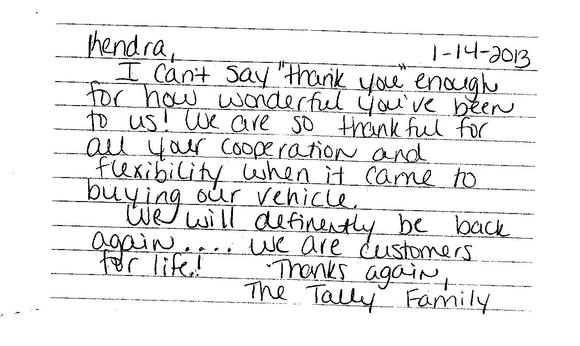 Kendra, 1-14-2013
I can't say "thank you" enough
for how wonderful you've been
to us! We are so thankful for
all your cooperation and
flexibility when it came to
buying our vehicle.
We will definently be back
again.... we are customers
for life! Thanks again,
The Tally Family